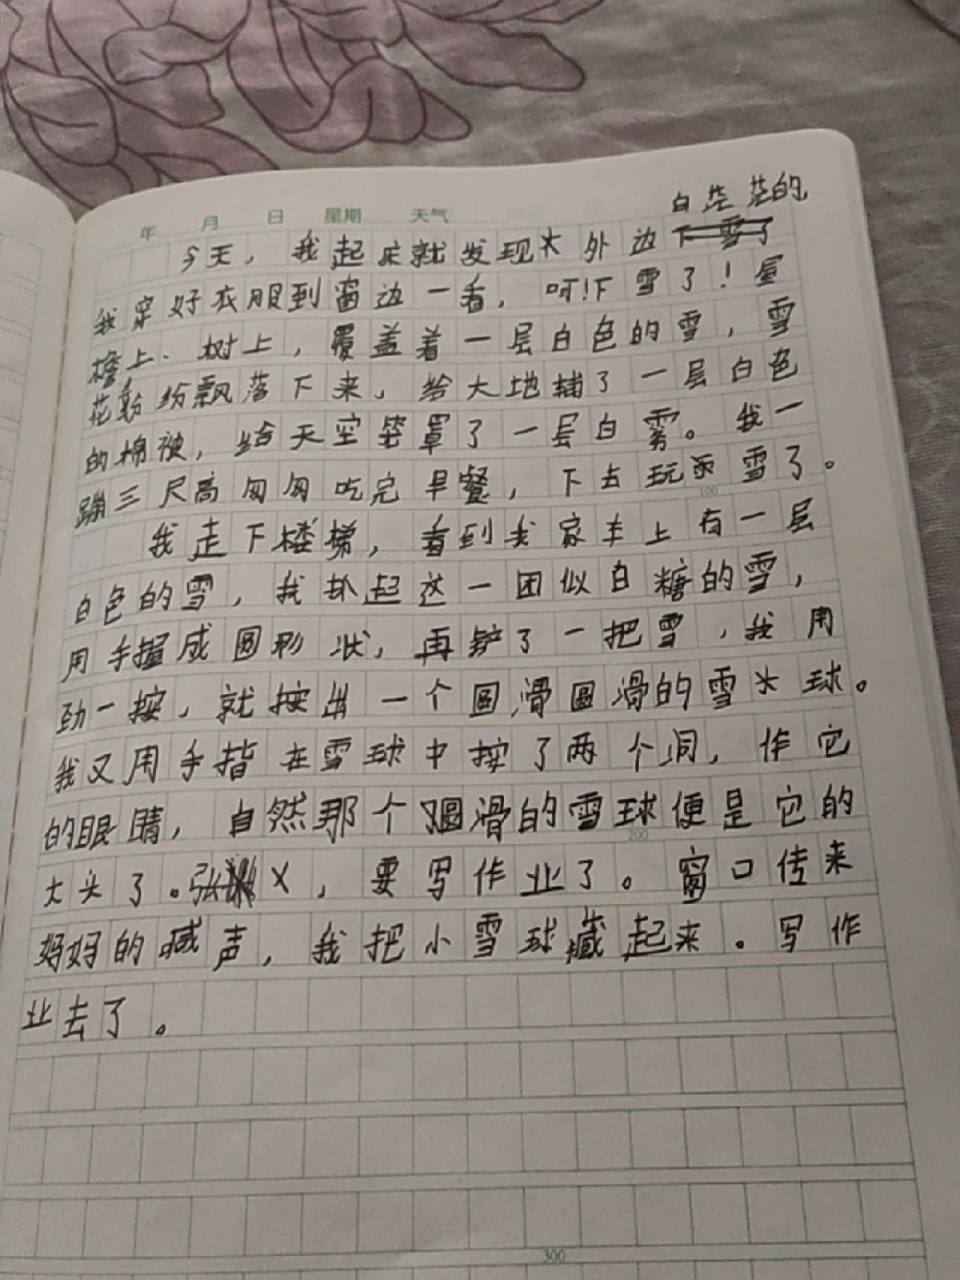 年 月 日 星期 天气
白茫茫的
今天，我起床就发现大外边下雪了
我穿好衣服到窗边一看，呵！下雪了！屋
檐上、树上，覆盖着一层白色的雪，雪
花纷纷飘落下来，给大地铺了一层白色
的棉被，给天空笼罩了一层白雾。我一
蹦三尺高匆匆吃完早餐，下去玩雪了。
100
我走下楼梯，看到我家车上有一层
白色的雪，我扒起这一团似白糖的雪，
用手握成圆形状，再铲了一把雪，我用
劲一按，就按出一个圆滑圆滑的雪球。
我又用手指在雪球中按了两个洞，作它
的眼睛，自然那个圆滑的雪球便是它的
200
大头了。张 X，要写作业了。窗口传来
妈妈的喊声，我把小雪球藏起来。写作
业去了。
300